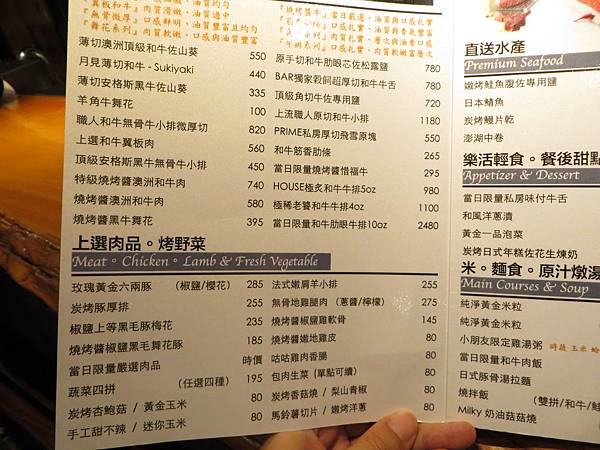 『翼板和牛』肉質滑嫩、油質適中
『無骨微厚』口感鮮明、油質豐富且均勻
『舞花系列』肉質軟嫩、口感與油質豐富
薄切澳洲頂級和牛佐山葵 550
月見薄切和牛 - Sukiyaki 440
薄切安格斯黑牛佐山葵 335
羊角牛舞花 100
職人和牛無骨牛小排微厚切 820
上選和牛翼板肉 520
頂級安格斯黑牛無骨牛小排 450
特級燒烤醬澳洲和牛肉 740
燒烤醬澳洲和牛肉 580
燒烤醬黑牛舞花 395
原手切和牛肋眼芯佐松露鹽 780
BAR獨家穀飼超厚切和牛牛舌 780
頂級角切牛佐專用鹽 720
上流職人原切和牛小排 1180
PRIME私房厚切飛雪原塊 550
和牛筋香肋條 265
當日限量燒烤醬惜福牛 295
HOUSE極炙和牛牛排5oz 980
極稀老饕和牛牛排4oz 1100
當日限量和牛肋眼牛排10oz 2480
上選肉品。烤野菜
Meat。Chicken。Lamb & Fresh Vegetable
玫瑰黃金六兩豚 (椒鹽/櫻花) 285
炭烤豚厚排 255
椒鹽上等黑毛豚梅花 235
燒烤醬椒鹽黑毛舞花豚 185
當日限量嚴選肉品 時價
蔬菜四拼 (任選四種) 195
炭烤杏鮑菇 / 黃金玉米 80
手工甜不辣 / 迷你玉米 80
法式嫩肩羊小排 255
無骨地雞腿肉 (蔥醬/檸檬) 275
燒烤醬椒鹽雞軟骨 145
燒烤醬嫩地雞皮 80
咕咕雞肉香腸 80
包肉生菜 (單點可續) 80
炭烤香菇燒 / 梨山青椒 80
馬鈴薯切片 / 嫩烤洋蔥 80
直送水產
Premium Seafood
嫩烤鮭魚腹佐專用鹽
日本鯖魚
炭烤鰻片乾
澎湖中卷
樂活輕食。餐後甜點
Appetizer & Dessert
當日限量私房味付牛舌
和風洋蔥漬
黃金一品泡菜
炭烤日式年糕佐花生煉奶
米。麵食。原汁燉湯
Main Courses & Soup
純淨黃金米粒
純淨黃金米粒
小朋友限定雞湯粥 時蔬 玉米
當日限量和牛肉飯
日式豚骨湯拉麵
燒拌飯 (雙拼/和牛/
Milky 奶油菇菇燒